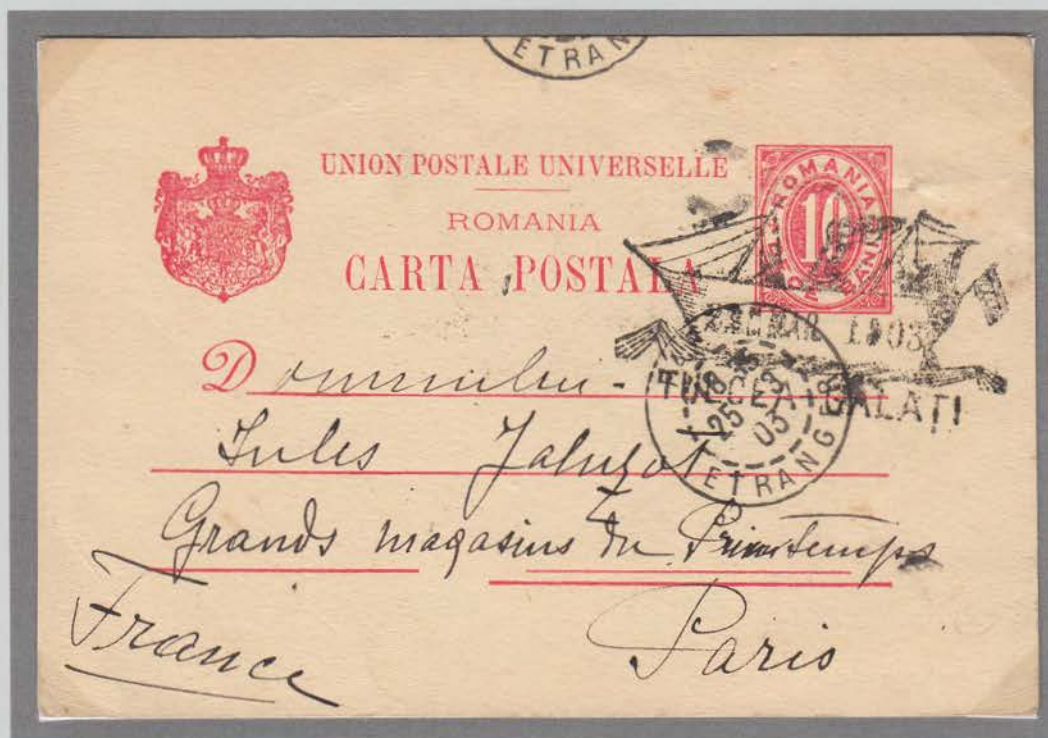 ETRAN
UNION POSTALE UNIVERSELLE
ROMANIA
CARTA POSTALA
ROMANIA
10
MAR 1903
TULCEA-GALAȚI
25 03
ETRANGER
Domnului
Jules Jaluzot
Grands magasins du Printemps
Paris
France